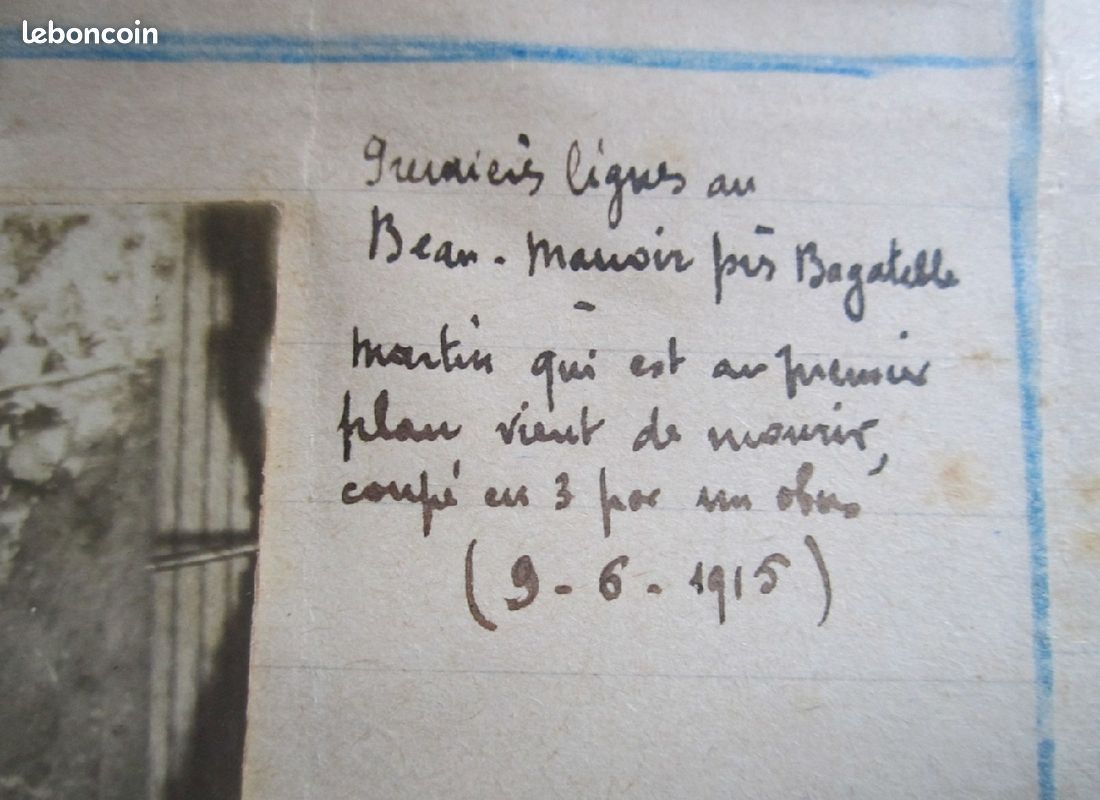 leboncoin
Premières lignes au
Beau-Manoir près Bagatelle
-
Martin qui est au premier
plan vient de mourir,
coupé en 3 par un obus
(9-6-1915)